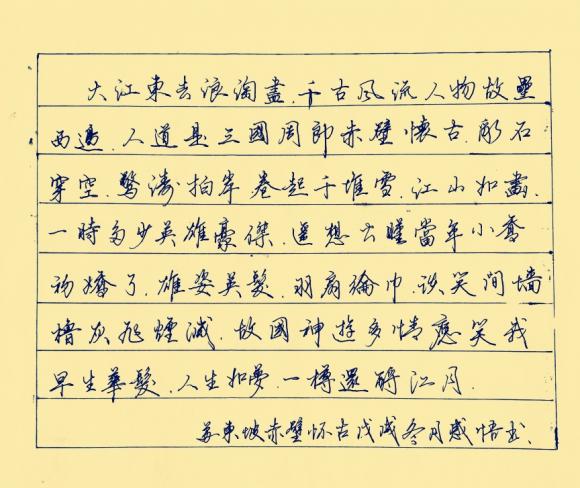 大江東去浪淘盡.千古風流人物故壘
西邊.人道是三國周郎赤壁懷古.彫石
穿空.驚濤拍岸卷起千堆雪.江山如畫.
一時多少英雄豪傑.遥想公瑾當年小喬
初嫁了.雄姿英髮.羽扇綸巾.談笑間墙
櫓灰飛煙滅.故國神遊多情應笑我
早生華髮.人生如夢.一樽還酹江月.
苏東坡赤壁怀古戊戌冬月感悟书.